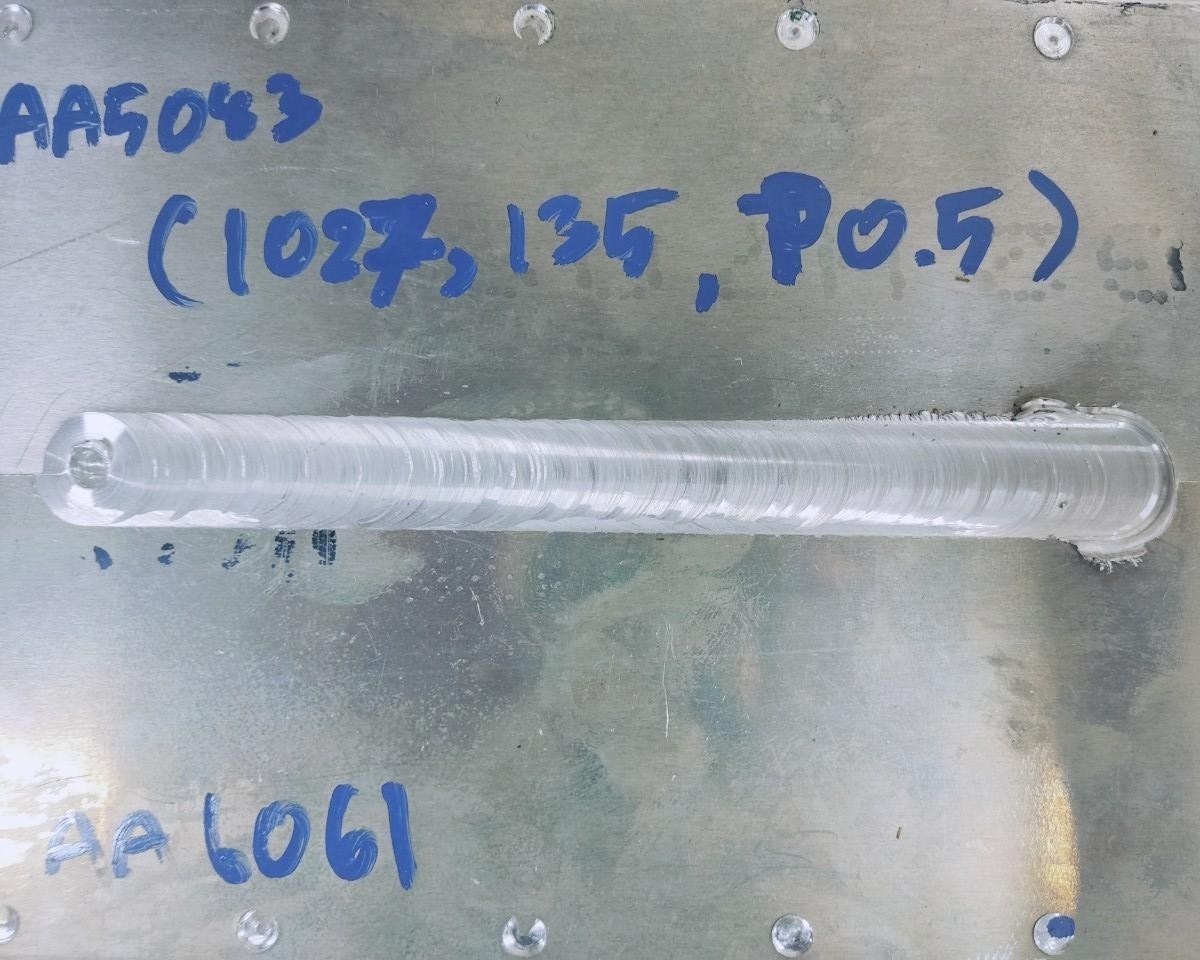 AA5043
(1027, 135, P0.5)
AA 6061